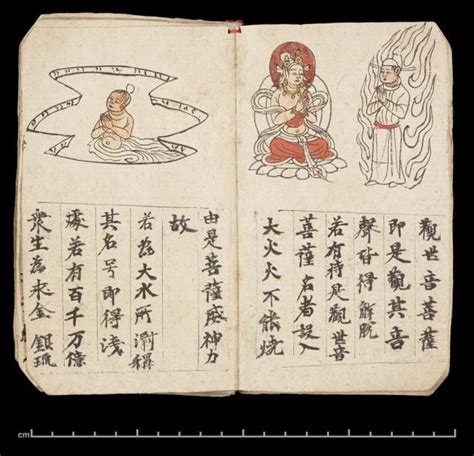 觀世音菩薩
即是觀其音
聲皆得解脫
若有持是觀世音
菩薩名者設入
大火火不能燒
由是菩薩威神力
故
若為大水所漂稱
其名号即得淺
處若有百千万億
眾生為求金銀琉
cm